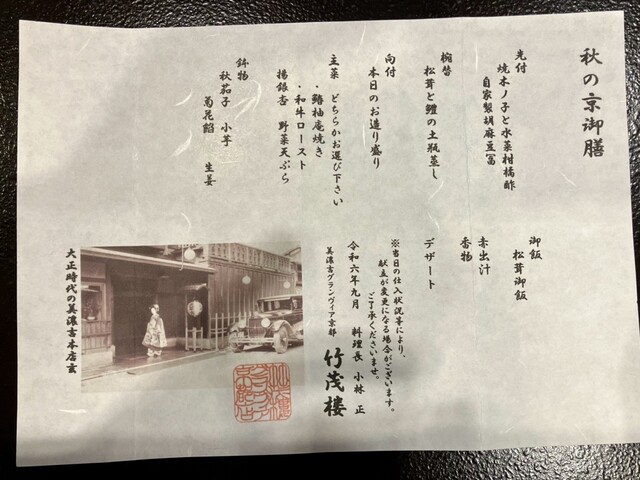 秋の京御膳
先付
焼木ノ子と水菜柑橘酢
自家製胡麻豆富
椀替
松茸と鱧の土瓶蒸し
向付
本日のお造り盛り
主菜 どちらかお選び下さい
・鰆柚庵焼き
・和牛ロースト
揚銀杏 野菜天ぷら
鉢物
秋茄子 小芋
菊花餡 生姜
御飯
松茸御飯
赤出汁
香物
デザート
※当日の仕入状況等により、
献立が変更になる場合がございます。
ご了承くださいませ。
令和六年九月 料理長 小林 正
美濃吉グランヴィア京都 竹茂楼
大正時代の美濃吉本店玄